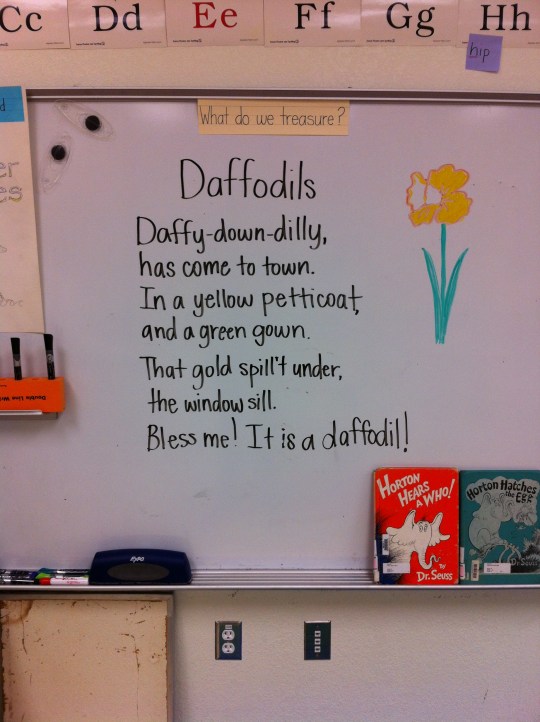 Cc Dd Ee Ff Gg Hh
hip
d
What do we treasure?
er
es
Daffodils
Daffy-down-dilly,
has come to town.
In a yellow petticoat,
and a green gown.
That gold spill't under,
the window sill.
Bless me! It is a daffodil!
EXPO
HORTON
HEARS
A WHO!
By
Dr. Seuss
Horton Hatches
the EGG
Dr. Seuss